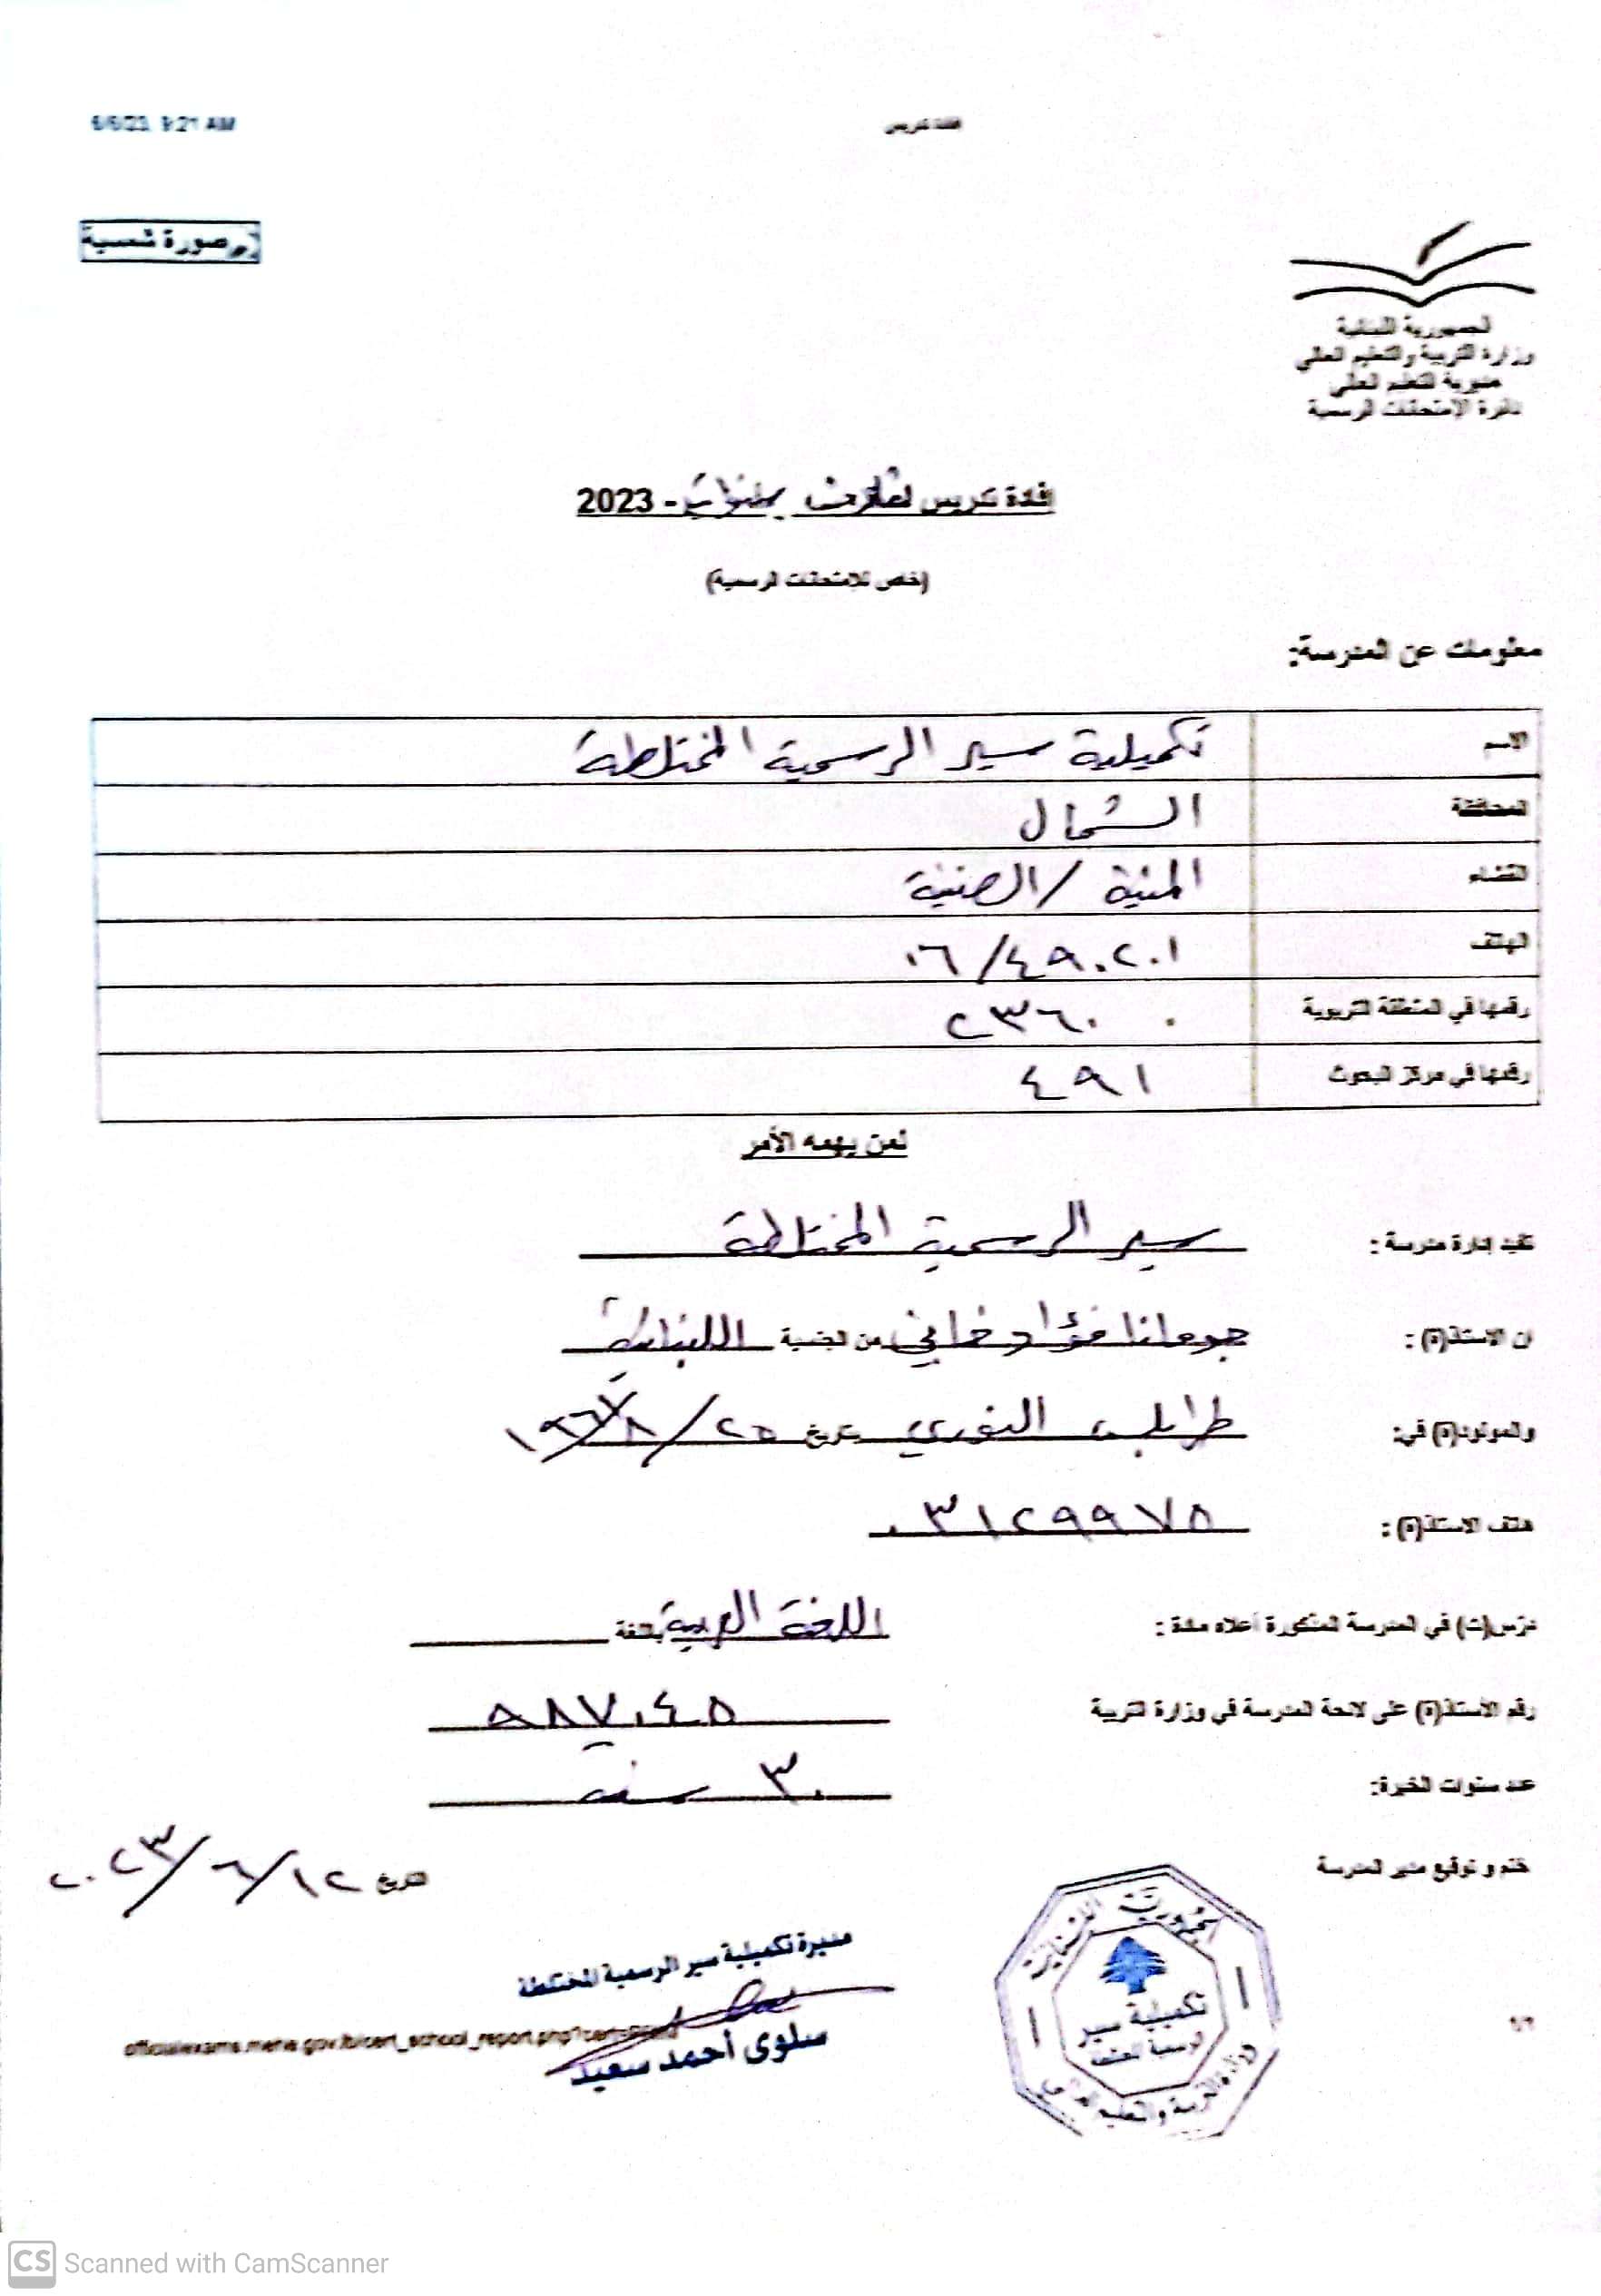 6/6/23, 9:21 AM
افادة تدريس
صورة شمسية
الجمهورية اللبنانية
وزارة التربية والتعليم العالي
مديرية التعليم العالي
دائرة الامتحانات الرسمية
افادة تدريس - 2023
(خاص للامتحانات الرسمية)
معلومات عن المدرسة:
الاسم تكميلية سير الرسمية المختلطة
المحافظة الشمال
القضاء المنية / الضنية
الهاتف ٠٦/٤٩٠٢٠١
رقمها في المنطقة التربوية ٢٣٦٠
رقمها في مركز البحوث ٤٩١
لمن يهمه الأمر
تفيد إدارة مدرسة : سير الرسمية المختلطة
ان الاستاذ(ة) : فؤاد من الجنسية اللبنانية
والمولود(ة) في: طرابلس النوري بتاريخ ٢٥/٨/
هاتف الاستاذ(ة) : ٠٣١٢٩٩٧٥
درّس(ت) في المدرسة المذكورة أعلاه مادة : اللغة العربية باللغة
رقم الأستاذ(ة) على لائحة المدرسة في وزارة التربية ٩٨٧٠٤٥
عدد سنوات الخبرة: ٣٠ سنة
ختم و توقيع مدير المدرسة
التاريخ ١٢/٦/٢٠٢٣
الجمهورية اللبنانية
تكميلية سير
الرسمية المختلطة
وزارة التربية والتعليم العالي
مديرة تكميلية سير الرسمية المختلطة
سلوى أحمد سعيد
officialexams.mehe.gov.lb/cert_school_report.php?
CS Scanned with CamScanner